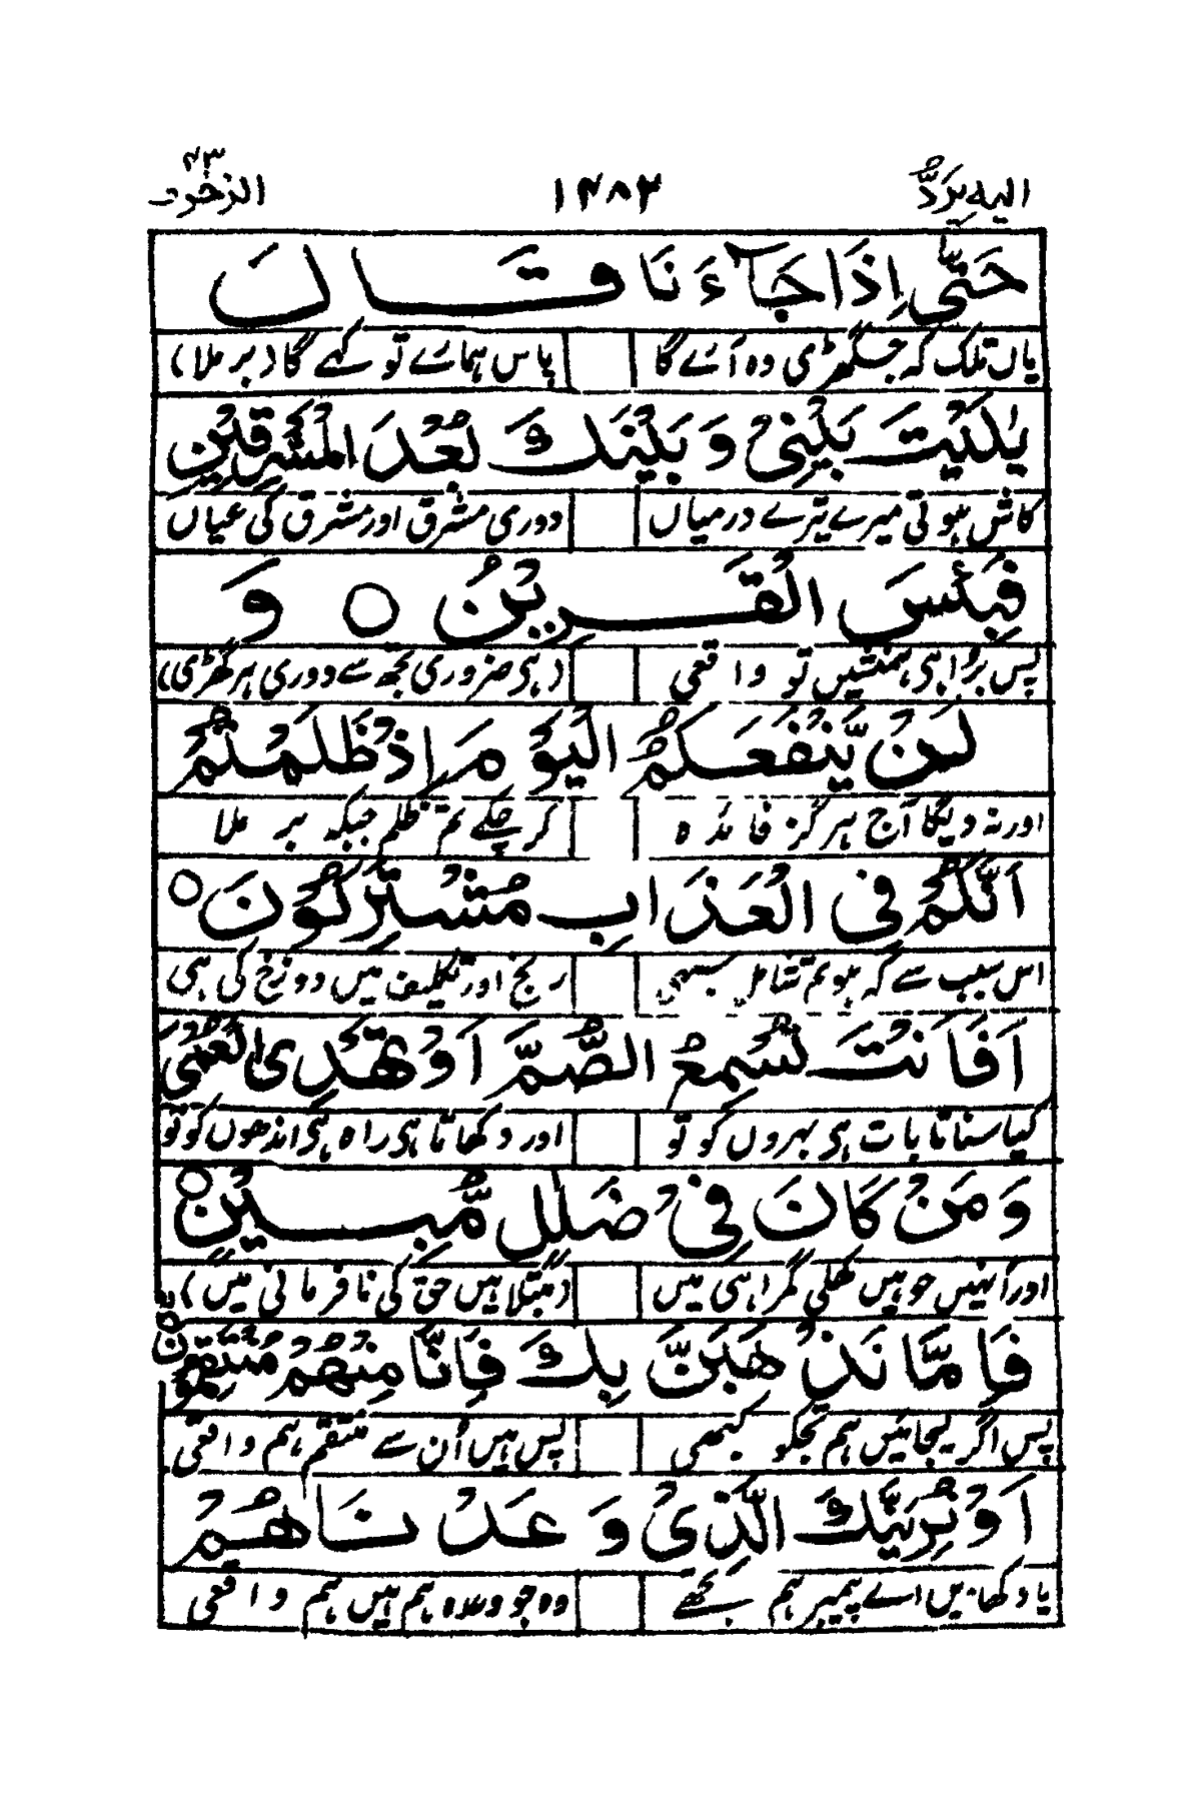 الیه یردّ ۱۴۸۲ الزخرف ۴۳
حَتّٰۤی اِذَا جَآءَ نَا قَالَ
یاں تلک کہ جس گھڑی وہ آئے گا پاس ہمارے تو کہے گا (بر ملا)
یٰلَیْتَ بَیْنِیْ وَ بَیْنَكَ بُعْدَ الْمَشْرِقَیْنِ
کاش ہوتی میرے تیرے درمیاں دوری مشرق اور مشرق کی عیاں
فَبِئْسَ الْقَرِیْنُ ○ وَ
پس بڑا ہی ہمنشیں تو واقعی (ہی ضروری تجھ سے دوری ہر گھڑی)
لَنْ یَّنْفَعَكُمُ الْیَوْمَ اِذْ ظَلَمْتُمْ
اور نہ دیگا آج ہرگز فائدہ کر چکے تم ظلم جبکہ بر ملا
اَنَّكُمْ فِی الْعَذَابِ مُشْتَرِكُوْنَ ○
اس سبب سے کہ ہو تم شامل سبھی رنج اور تکلیف میں دوزخ کی ہی
اَفَاَنْتَ تُسْمِعُ الصُّمَّ اَوْ تَهْدِی الْعُمْیَ
کیا سناتا بات ہی بہروں کو تو اور دکھاتا ہی راہ ہی اندھوں کو تو
وَ مَنْ كَانَ فِیْ ضَلٰلٍ مُّبِیْنٍ ○
اور اُنہیں جو ہیں کھلی گمراہی میں (مبتلا ہیں حق کی نافرمانی میں)
فَاِمَّا نَذْهَبَنَّ بِكَ فَاِنَّا مِنْهُمْ مُّنْتَقِمُوْنَ ○
پس اگر لیجائیں ہم تجکو کبھی پس ہیں اُن سے منتقم ہم واقعی
اَوْ نُرِیَنَّكَ الَّذِیْ وَعَدْنَاهُمْ
یا دکھائیں اے پیمبر ہم تجھے وہ جو وعدہ ہم ہیں ہم واقعی